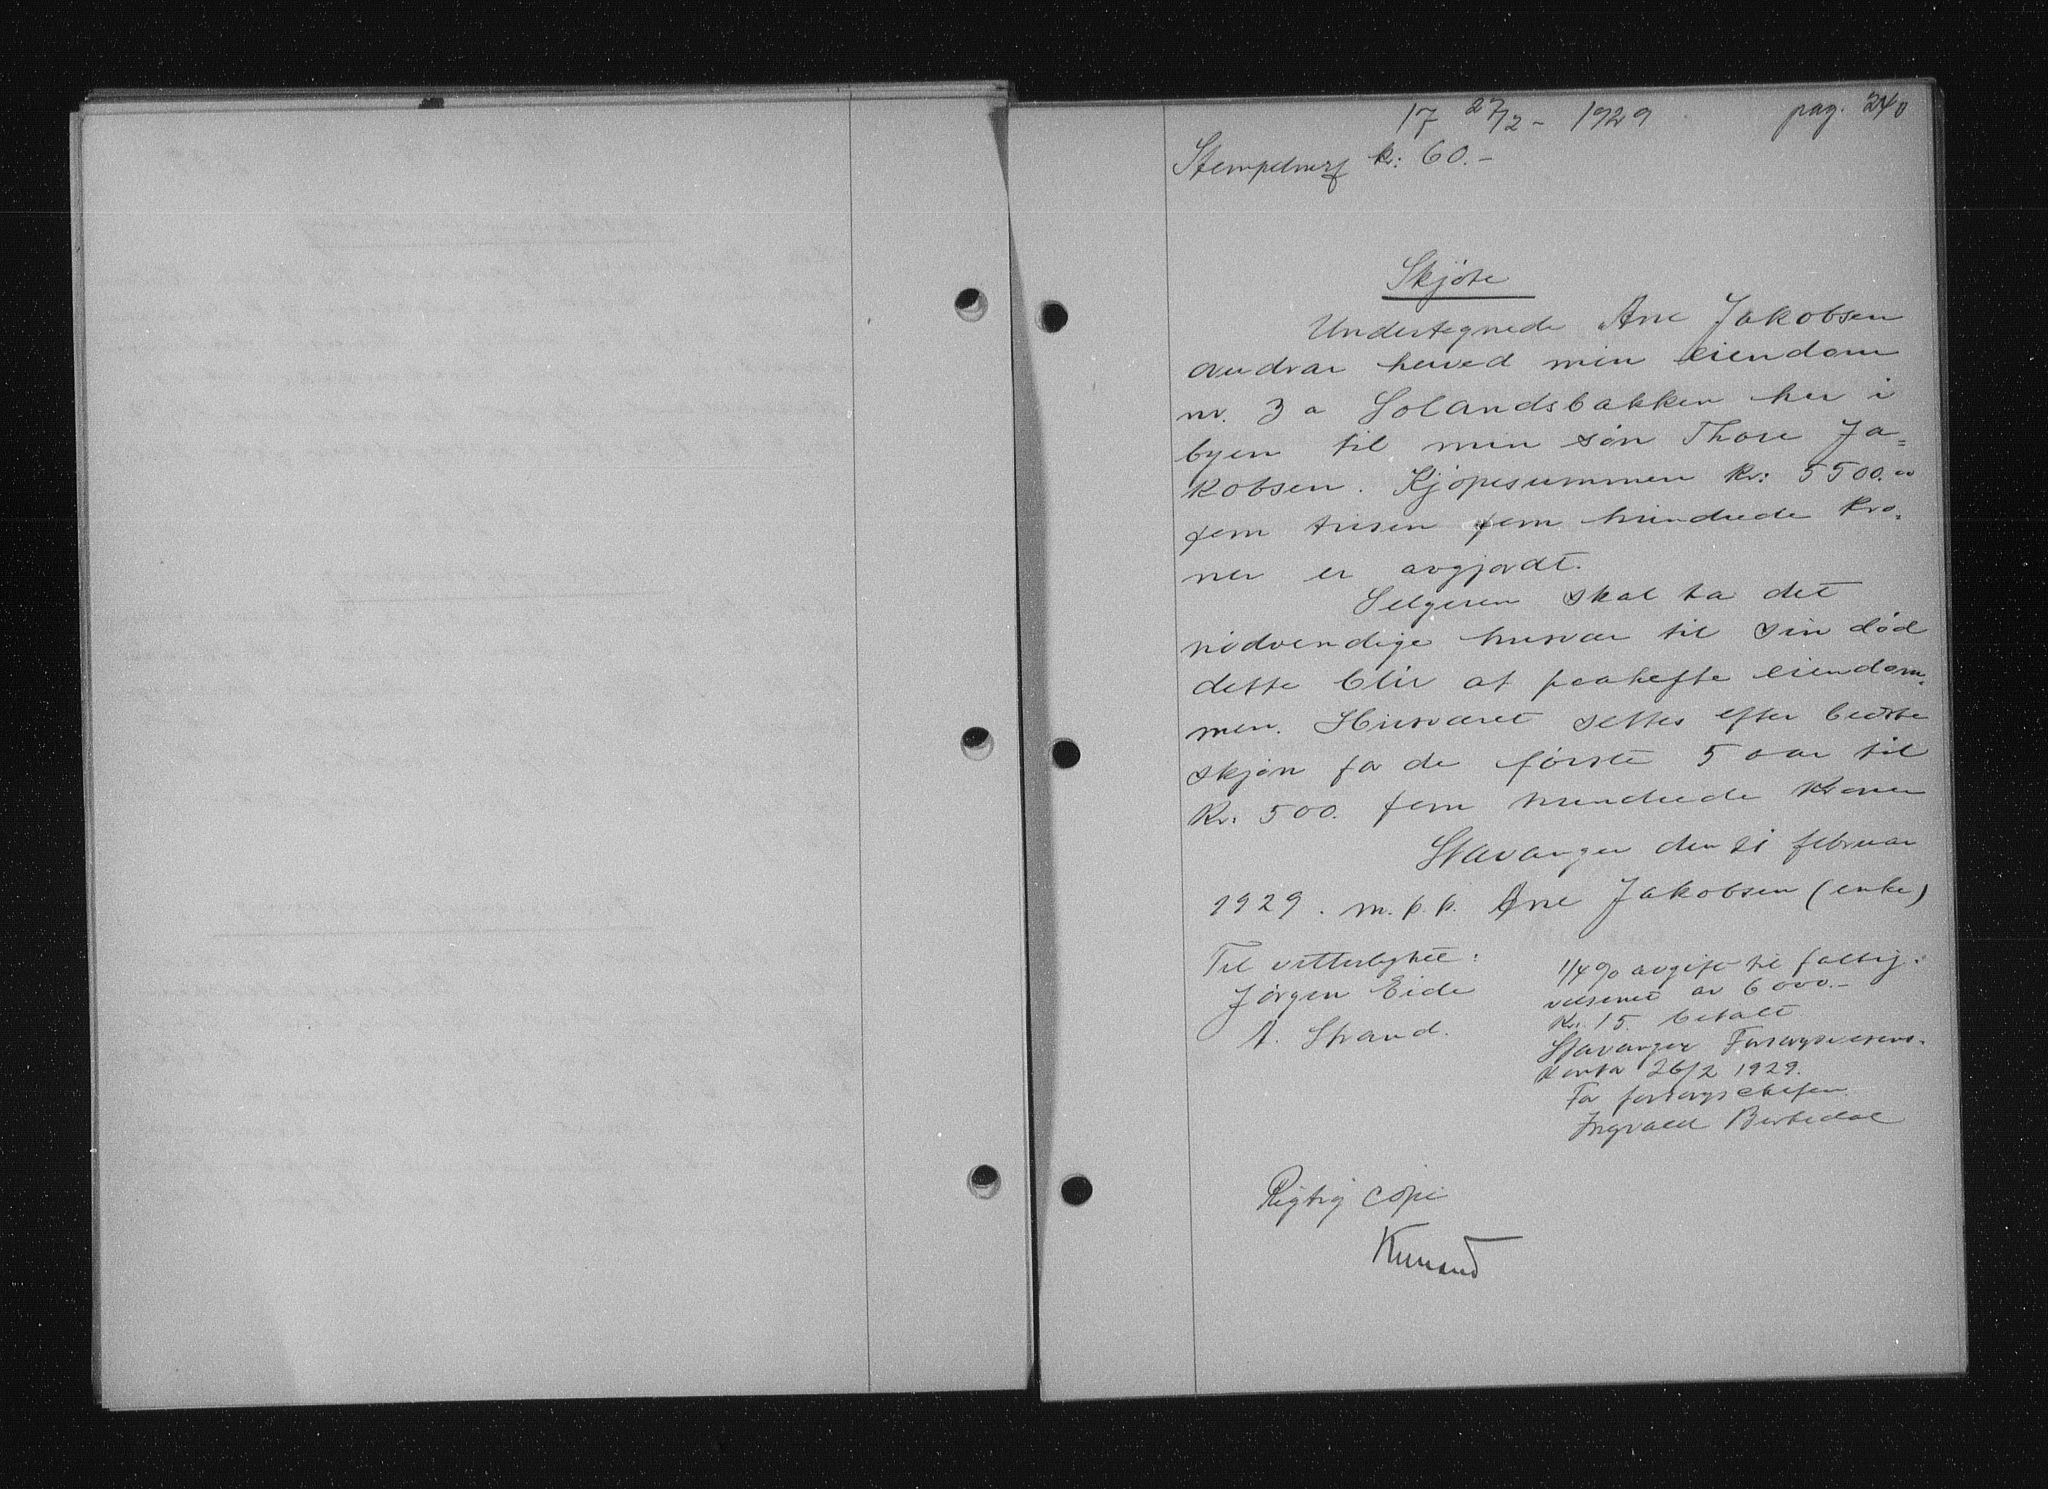 17 27/2 - 1929 pag. 240
Stempelmerk kr: 60.-
Skjøte
Undertegnede Ane Jakobsen
avdrar herved min eiendom
nr. 3 a Solandsbakken her i
byen til min søn Thore Ja=
kobsen. Kjøpesummen kr: 5500.00
fem tusen fem hundrede kro,
ner er avgjordt.
Selgeren skal ha det
nødvendige husvær til sin død
dette blir at paahefte eiendom,
men. Husværet settes efter bedste
skjøn for de første 5 aar til
kr. 500. fem hundrede kroner
Stavanger den 21 februar
1929. m.p.p. Ane Jakobsen (enke)
Til vitterlighet:
Jørgen Eide
A. Strand.
1/4 % avgift til fattig-
vesenet av 6000.-
Kr. 15. betalt
Stavanger Forsorgsvesens-
kontor 26/2 1929.
For forsorgschefen
Ingvald Berkedal
Rigtig copi